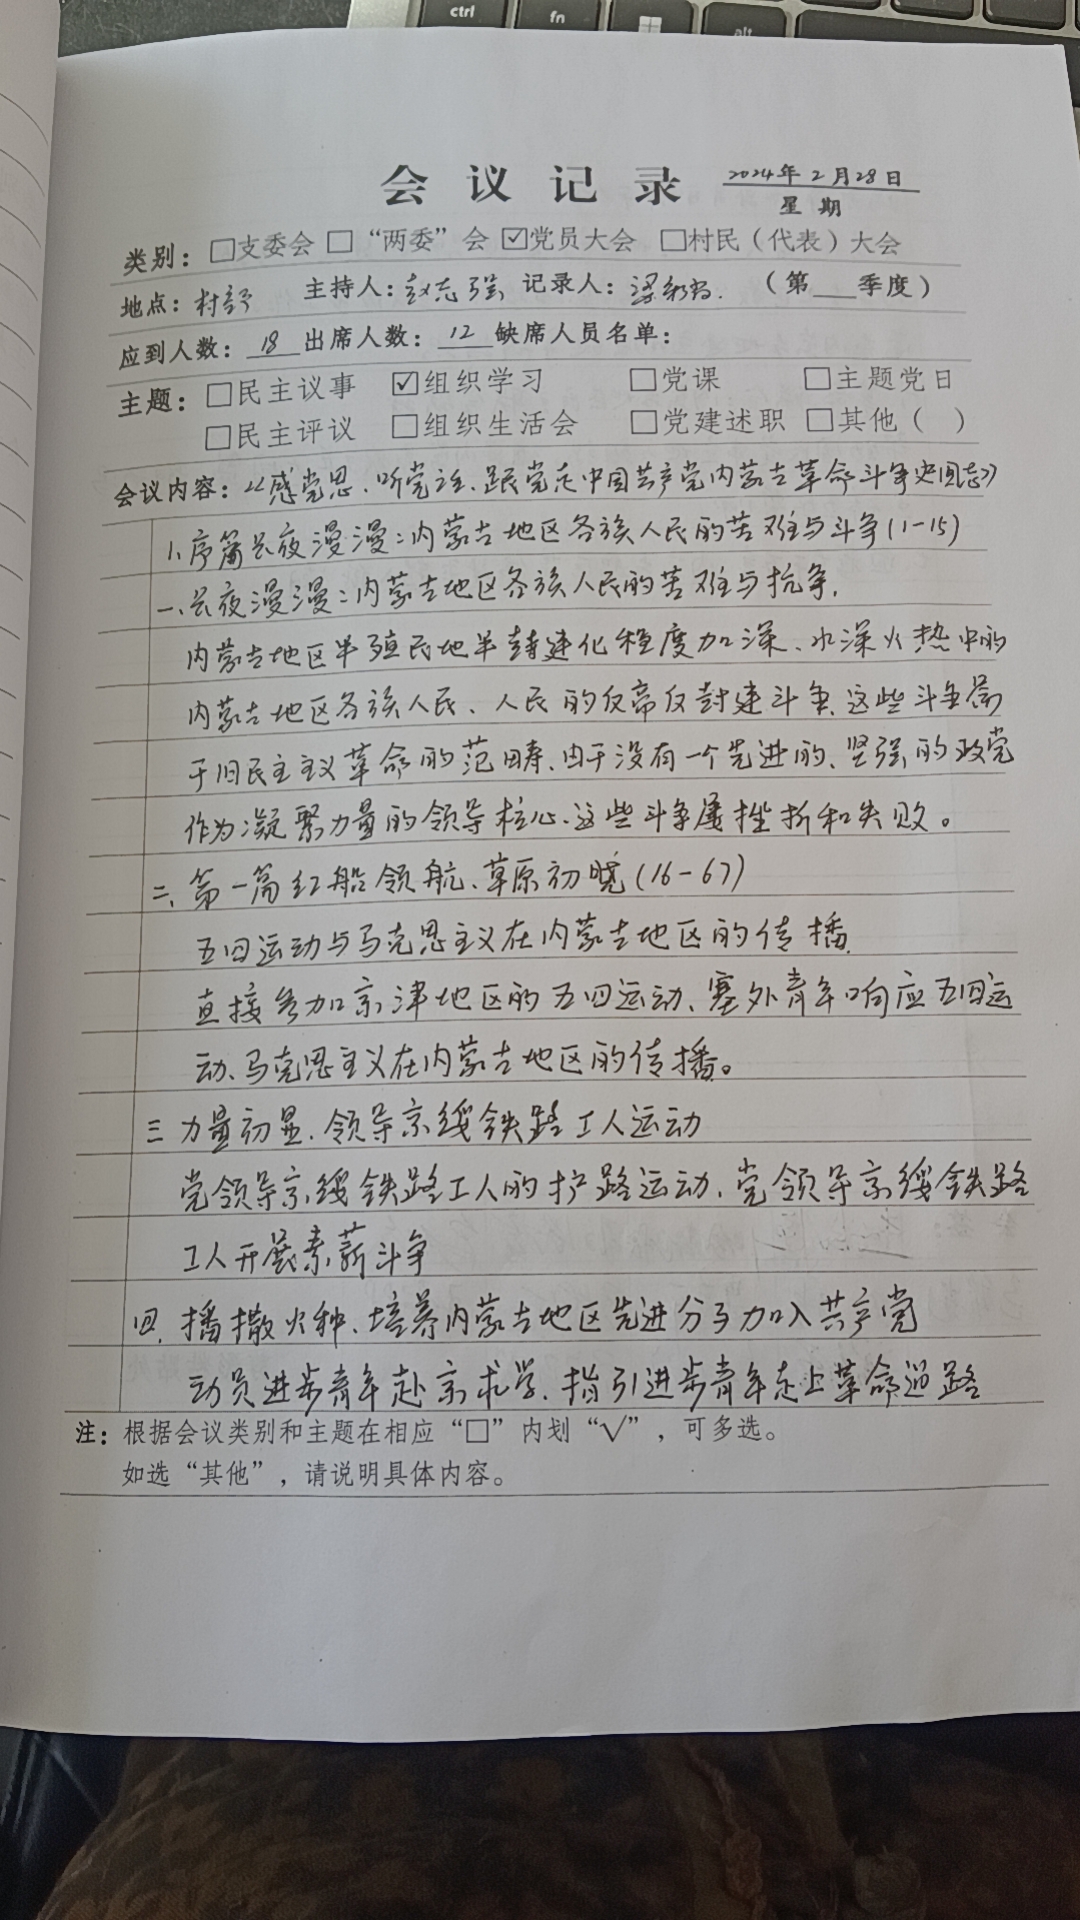 ctrl fn alt
会议记录 2024年2月28日
星期
类别：□支委会 □“两委”会 ☑党员大会 □村民（代表）大会
地点：村部 主持人：赵志强 记录人：梁 （第 季度）
应到人数：18 出席人数：12 缺席人员名单：
主题：□民主议事 ☑组织学习 □党课 □主题党日
□民主评议 □组织生活会 □党建述职 □其他（ ）
会议内容：《感党恩、听党话、跟党走中国共产党内蒙古革命斗争史 》
1、序篇长夜漫漫：内蒙古地区各族人民的苦难与斗争(1-15)
一、长夜漫漫：内蒙古地区各族人民的苦难与抗争.
内蒙古地区半殖民地半封建化程度加深、水深火热中的
内蒙古地区各族人民、人民的反帝反封建斗争、这些斗争属
于旧民主主义革命的范畴、由于没有一个先进的、坚强的政党
作为凝聚力量的领导核心、这些斗争屡挫折和失败。
二、第一篇红船领航、草原初晓(16-67)
五四运动与马克思主义在内蒙古地区的传播.
直接参加京津地区的五四运动、塞外青年响应五四运
动、马克思主义在内蒙古地区的传播。
三 力量初显、领导京绥铁路工人运动
党领导京绥铁路工人的护路运动、党领导京绥铁路
工人开展索薪斗争
四、播撒火种、培养内蒙古地区先进分子加入共产党
动员进步青年赴京求学、指引进步青年走上革命道路
注：根据会议类别和主题在相应“□”内划“√”，可多选。
如选“其他”，请说明具体内容。